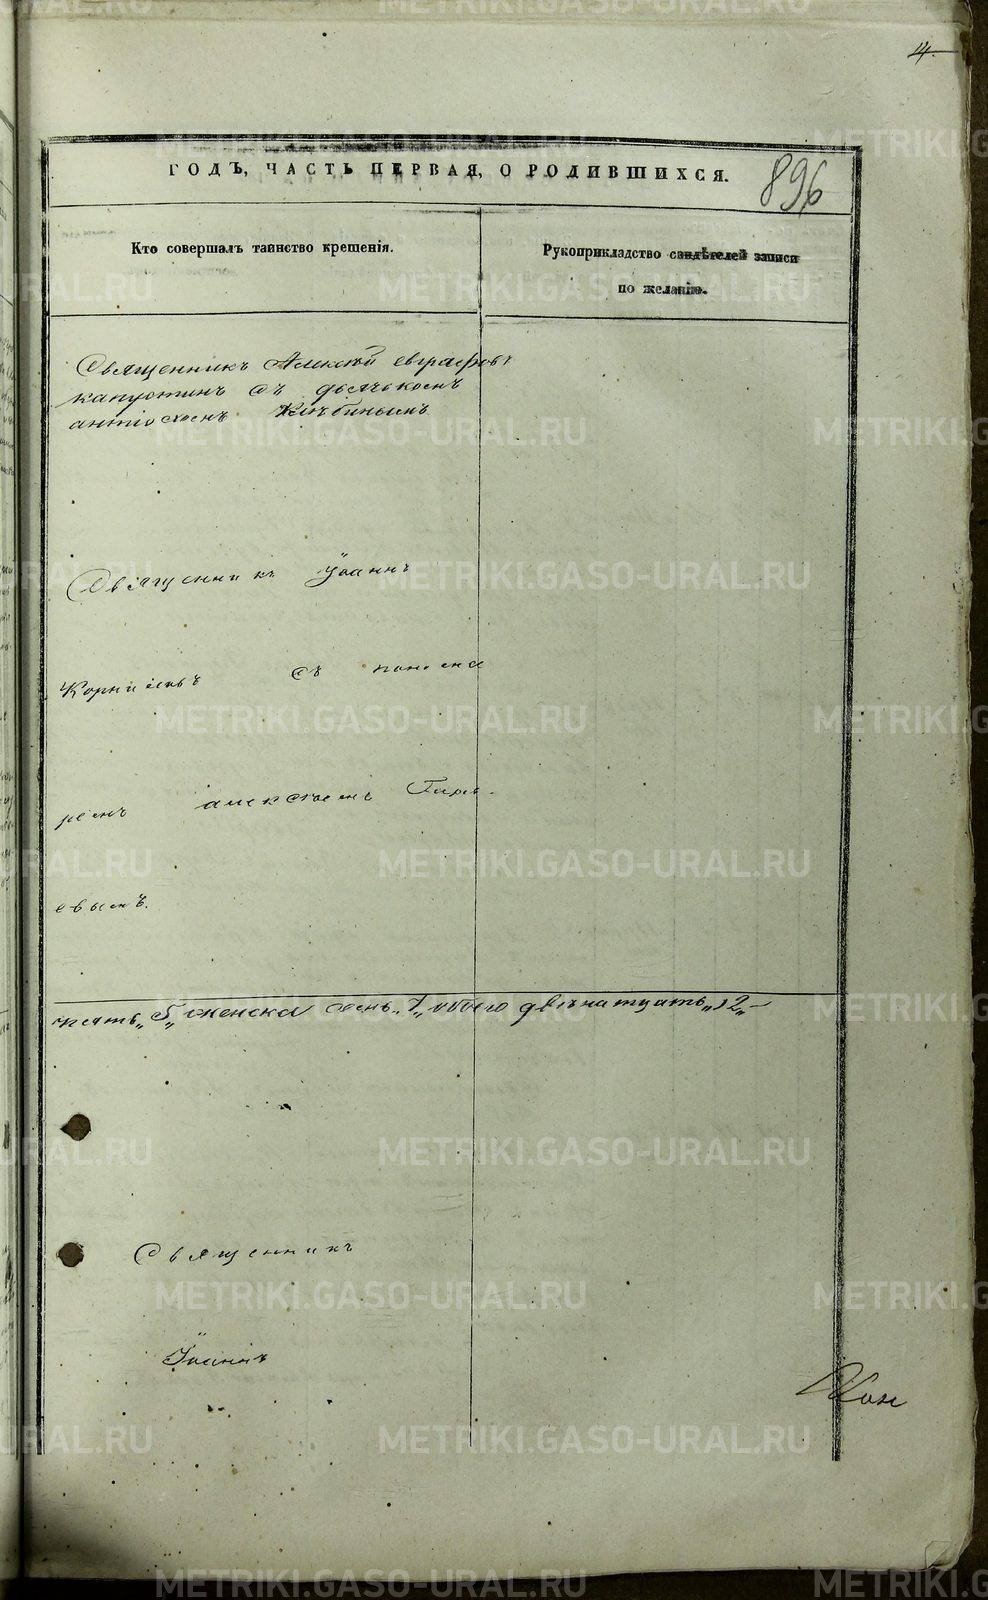 14.
ГОДЪ, ЧАСТЬ ПЕРВАЯ, О РОДИВШИХСЯ.
896
Кто совершалъ таинство крещенія.
Рукоприкладство свидѣтелей записи
по желанію.
Священникъ Алексѣй Евграфовъ
Капустинъ съ дьячькомъ
антіохомъ
Священникъ Іоаннъ
Корниловъ съ понома
ремъ алексѣемъ
евымъ.
5, женска семь, 7, обоего двѣнатцать, 12
Священникъ
Іоаннъ
Кон
METRIKI.GASO-URAL.RU